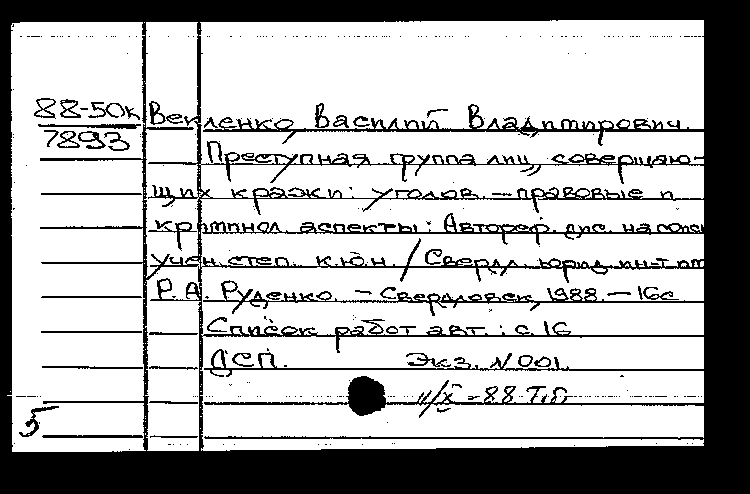 88-50к Векленко, Василий Владимирович.
7893
Преступная группа лиц, совершаю-
щих кражи: уголов.-правовые и
кримнол. аспекты: Автореф. дис. на соиск
учен. степ. к.ю.н. / Свердл. юрид. ин-т им
Р.А. Руденко. - Свердловск, 1988. - 16с
Список работ авт.: с. 16
ДСП. Экз. N 001.
11/X - 88 Т.П
5